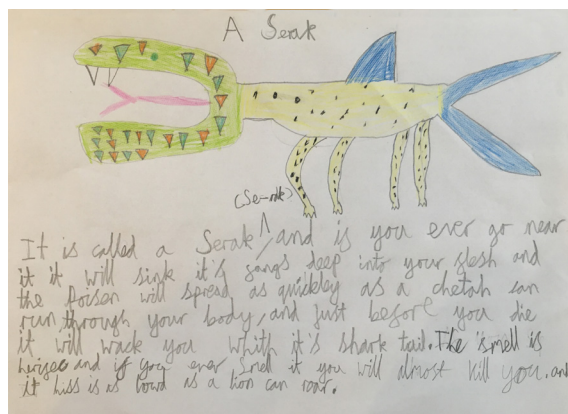 A Serak
(Se-rak)
It is called a Serak, and is you ever go near
it it will sink it's fangs deep into your flesh and
the poisen will spread as quickley as a chetah can
run through your body, and just before you die
it will wack you whith it's shark tail. The smell is
and if you ever smell it you will almost kill you. and
it hiss is as lowd as a lion can roar.